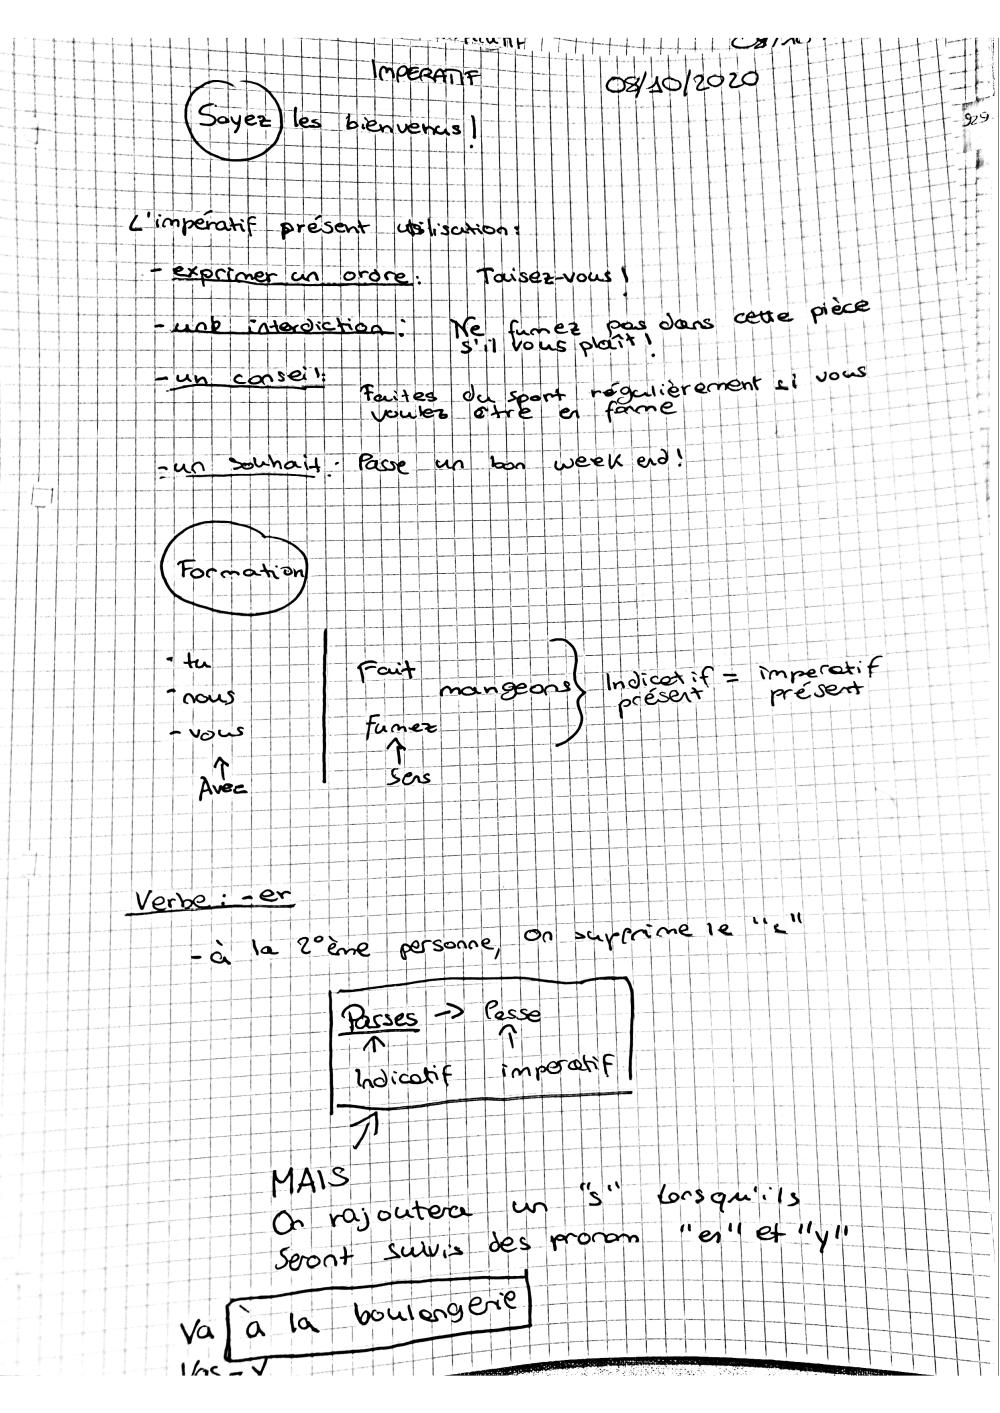 IMPERATIF
08/10/2020
Soyez les bienvenus!
L'impératif présent utilisation:
- exprimer un ordre: Taisez-vous!
- une interdiction: Ne fumez pas dans cette pièce
s'il vous plaît!
- un conseil: Faites du sport régulièrement si vous
voulez être en forme
- un souhait: Passe un bon week end!
Formation
- tu
- nous
- vous
Avec
Fait
mangeons
fumez
Sens
Indicatif = imperatif
présent présent
Verbe: -er
- à la 2°ème personne, on supprime le "s"
Passes -> Passe
Indicatif imperatif
MAIS
On rajoutera un "s" Lorsqu'ils
Seront suivis des pronom "en" et "y"
Va à la boulangerie
Vas-y